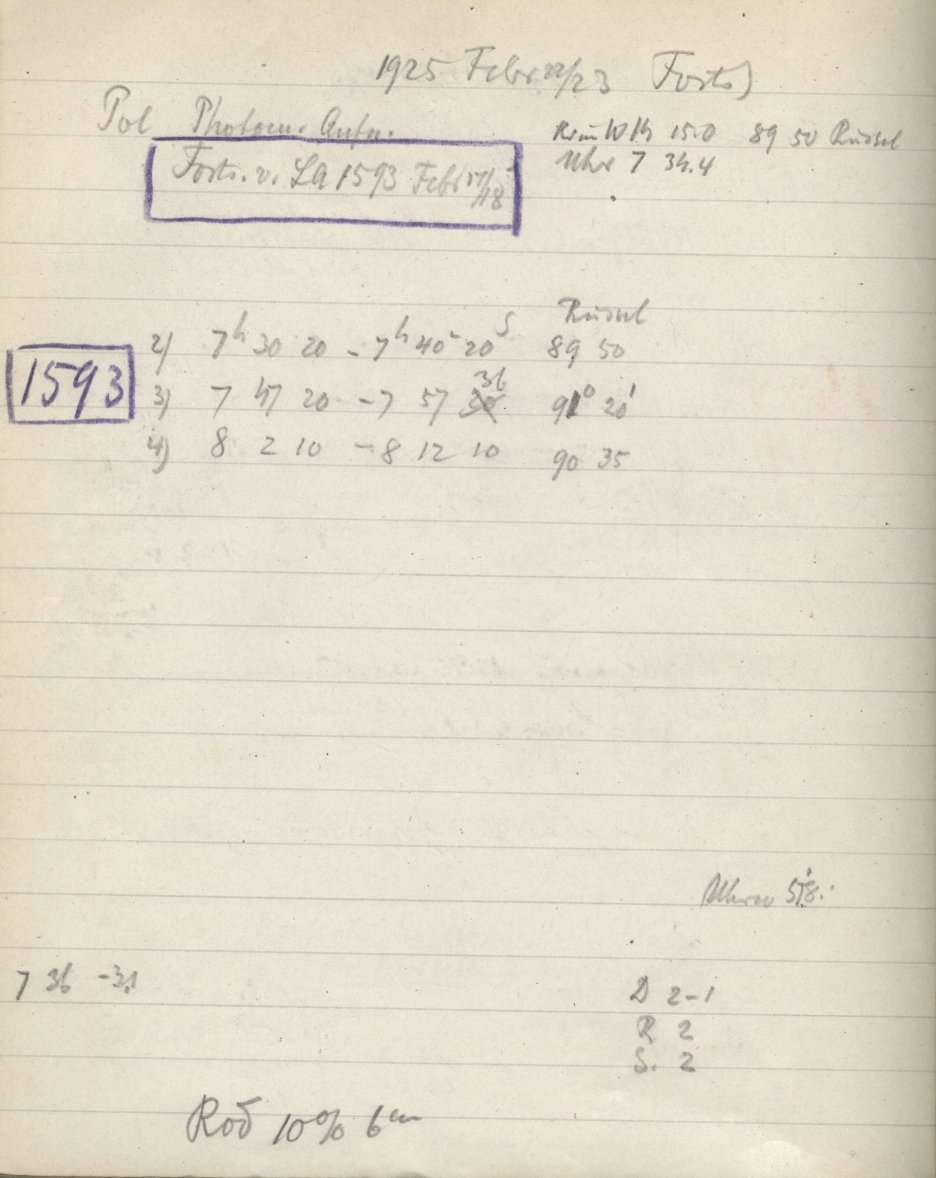 1925 Febr 22/23 Forts)
Pol Photom. Aufn.
Forts. v. LA 1593 Febr 17/18
15.0 89 50 Rüssel
Uhr 7 34.4
Rüssel
2) 7h 30 20 - 7h 40 20s 89 50
1593
3) 7 47 20 - 7 57 36 91° 20'
4) 8 2 10 - 8 12 10 90 35
7 36 -3.1
D 2-1
R 2
S. 2
Rod 10% 6 cm